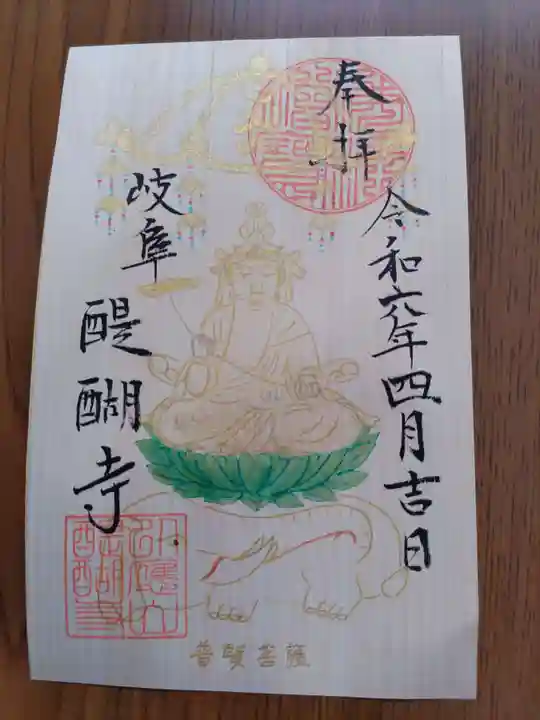 奉拝
令和六年四月吉日
岐阜 醍醐寺
普賢菩薩